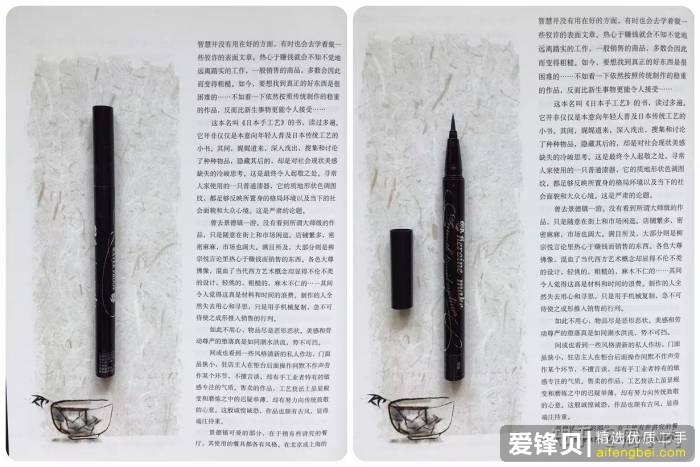 智慧并没有用在好的方面，有时也会去学着做一
些狡诈的表面文章。热心于赚钱就会不知不觉地
远离踏实的工作，一般销售的商品，多数会因此
而变得粗糙。如今，要想找到真正的好东西是很
困难的……不如看一下依然按照传统制作的稳重
的作品，反而比新生事物更能令人接受……
这本名叫《日本手工艺》的书，读过多遍。
它并非仅仅是本意向年轻人普及日本传统工艺的
小书。其间，娓娓道来，深入浅出，搜集和讨论
了种种物品，隐藏其后的，却是对社会现状美感
缺失的冷峻思考。这是最终令人起敬之处。寻常
人家使用的一只普通漆器，它的质地形状色调图
纹，都足够反映所置身的格局环境以及当下的社
会面貌和大众心境。这是严肃的论题。
曾去景德镇一游。没有看到所谓大师级的作
品，只是随意在街上和市场闲逛。店铺繁多，密
密麻麻，市场也阔大。满目所及，大部分则是柳
宗悦言论里热心于赚钱而销售的东西。各色大尊
佛像，混血了当代西方艺术概念却显得不伦不类
的设计。轻佻的，粗糙的，麻木不仁的……其间
令人觉得这真是材料和时间的浪费。制作的人全
然失去用心和寻思，只是用手机械复制，急不可
待使之成形推入销售的行列。
如此不用心，物品尽是恶形恶状。美感和劳
动尊严的堕落真是如同潮水洪流，势不可挡。
间或也看到一些风格清新的私人作坊，门面
虽狭小，驻店主人在柜台后面操作间默不作声劳
作某个环节，不擅言谈，却有手工业者特有的敏
感专注的气质。售卖的作品，工艺技法上虽呈现
安和磨练之中的迟疑单薄，却有努力向传统致敬
的心意。这般诚惶诚恐，作品也颇有古风，显得
端庄持重。
景德镇可爱的部分，在于拥有些讲究的餐
厅，其使用的餐具都各有风格。在北京或上海的
智慧并没有用在好的方面，有时也会去学着做一
些狡诈的表面文章。热心于赚钱就会不知不觉地
远离踏实的工作，一般销售的商品，多数会因此
而变得粗糙。如今，要想找到真正的好东西是很
困难的……不如看一下依然按照传统制作的稳重
的作品，反而比新生事物更能令人接受……
这本名叫《日本手工艺》的书，读过多遍。
它并非仅仅是本意向年轻人普及日本传统工艺的
小书。其间，娓娓道来，深入浅出，搜集和讨论
了种种物品，隐藏其后的，却是对社会现状美感
缺失的冷峻思考。这是最终令人起敬之处。寻常
人家使用的一只普通漆器，它的质地形状色调图
纹，都足够反映所置身的格局环境以及当下的社
会面貌和大众心境。这是严肃的论题。
曾去景德镇一游。没有看到所谓大师级的作
品，只是随意在街上和市场闲逛。店铺繁多，密
密麻麻，市场也阔大。满目所及，大部分则是柳
宗悦言论里热心于赚钱而销售的东西。各色大尊
佛像，混血了当代西方艺术概念却显得不伦不类
的设计。轻佻的，粗糙的，麻木不仁的……其间
令人觉得这真是材料和时间的浪费。制作的人全
然失去用心和寻思，只是用手机械复制，急不可
待使之成形推入销售的行列。
如此不用心，物品尽是恶形恶状。美感和劳
动尊严的堕落真是如同潮水洪流，势不可挡。
间或也看到一些风格清新的私人作坊，门面
虽狭小，驻店主人在柜台后面操作间默不作声劳
作某个环节，不擅言谈，却有手工业者特有的敏
感专注的气质。售卖的作品，工艺技法上虽呈现
的心意。这般诚惶诚恐，作品也颇有古风，显得
端庄持重。
heroine make
爱锋贝 精选优质二手
aifengbei.com